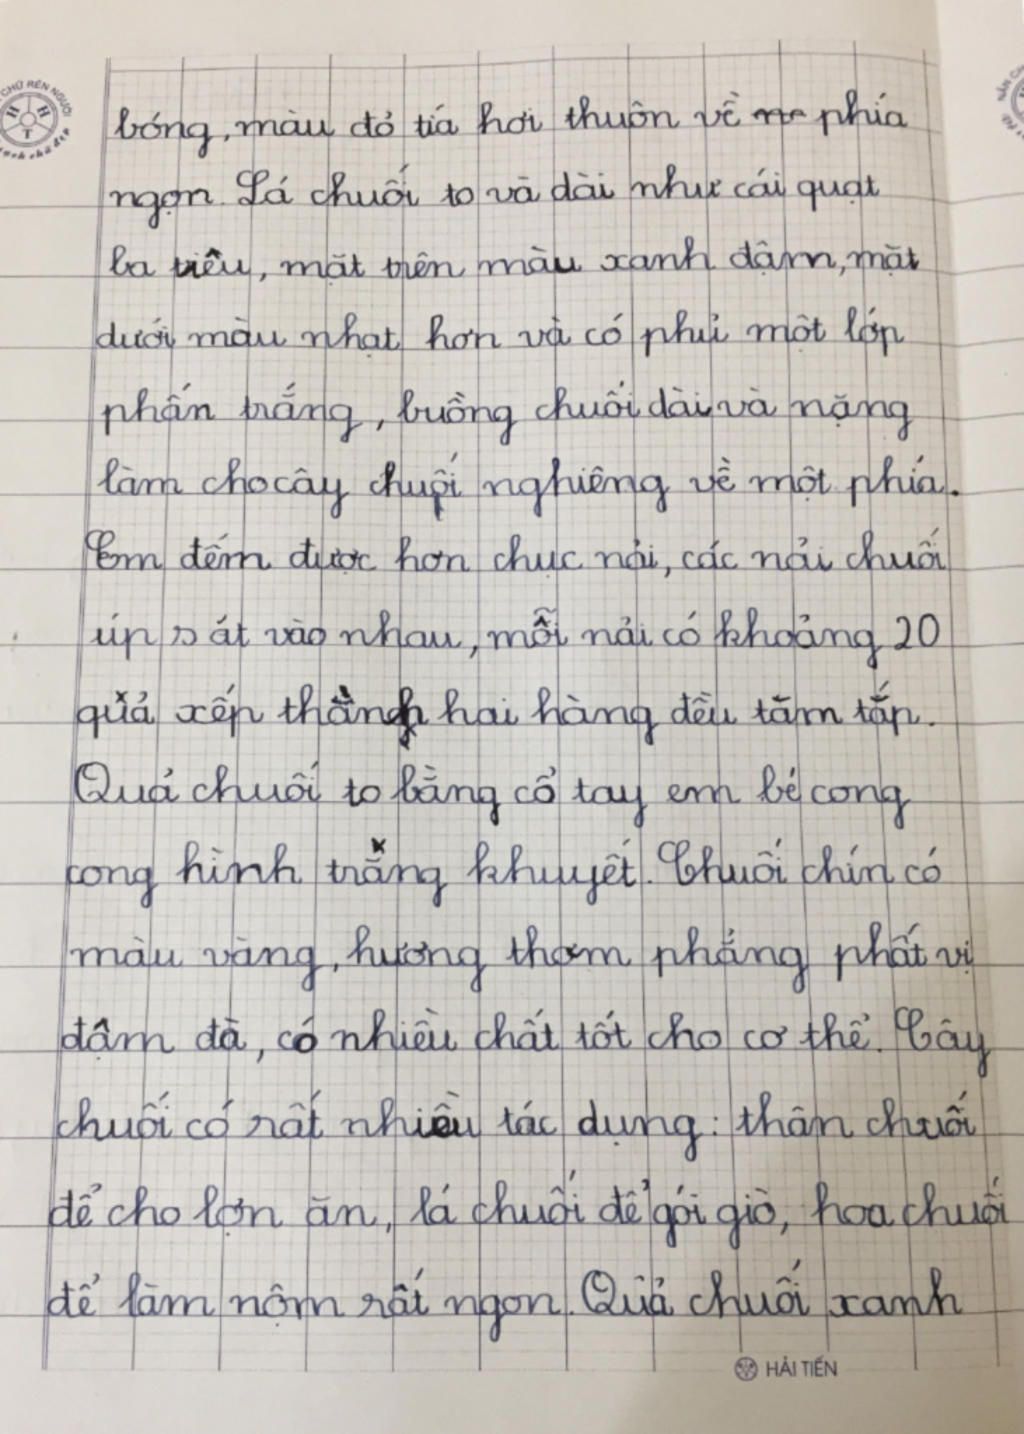 CHỮ RÈN NGƯỜI
bóng, màu đỏ tía hơi thuôn về phía
ngọn. Lá chuối to và dài như cái quạt
ba tiêu, mặt trên màu xanh đậm, mặt
dưới màu nhạt hơn và có phủ một lớp
phấn trắng, buồng chuối dài và nặng
làm cho cây chuối nghiêng về một phía.
Em đếm được hơn chục nải, các nải chuối
úp sát vào nhau, mỗi nải có khoảng 20
quả xếp thành hai hàng đều tăm tắp.
Quả chuối to bằng cổ tay em bé cong
cong hình trăng khuyết. Chuối chín có
màu vàng, hương thơm phảng phất vị
đậm đà, có nhiều chất tốt cho cơ thể. Cây
chuối có rất nhiều tác dụng: thân chuối
để cho lợn ăn, lá chuối để gói giò, hoa chuối
để làm nộm rất ngon. Quả chuối xanh
HẢI TIẾN